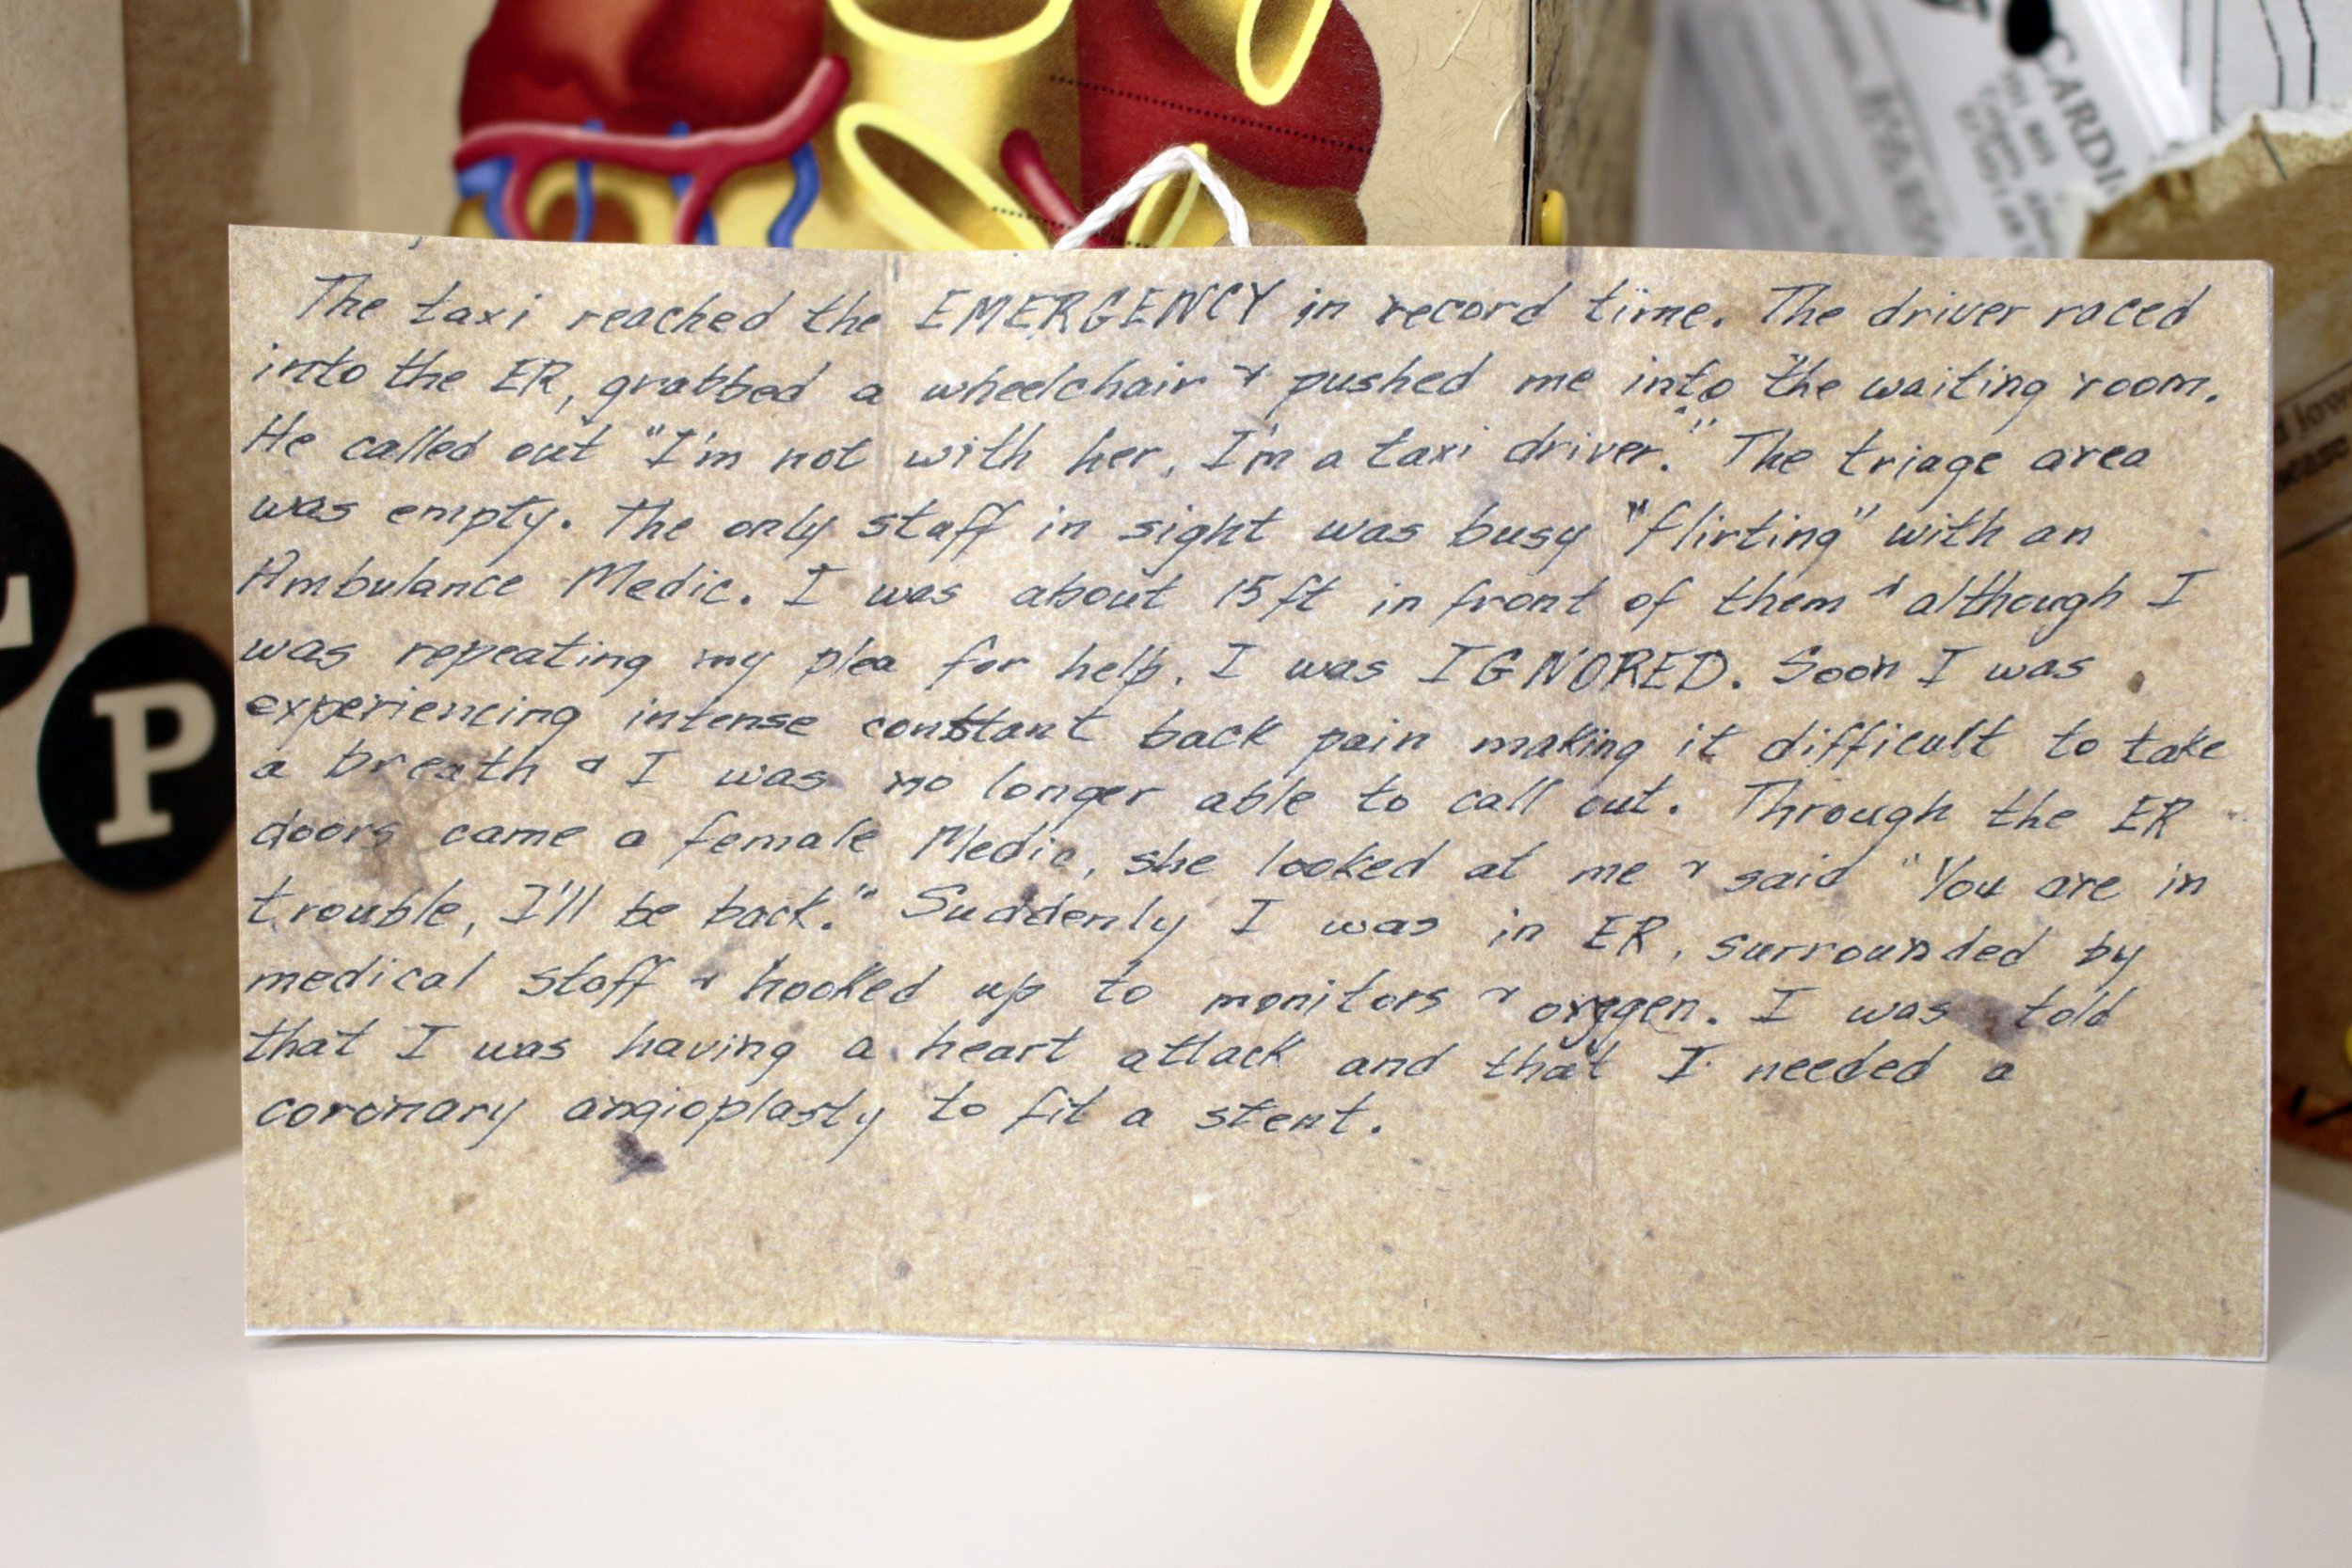 The taxi reached the EMERGENCY in record time. The driver raced
into the ER, grabbed a wheelchair & pushed me into the waiting room.
He called out "I'm not with her, I'm a taxi driver." The triage area
was empty. The only staff in sight was busy "flirting" with an
Ambulance Medic. I was about 15ft in front of them & although I
was repeating my plea for help, I was IGNORED. Soon I was
experiencing intense constant back pain making it difficult to take
a breath & I was no longer able to call out. Through the ER
doors came a female Medic, she looked at me & said "You are in
trouble, I'll be back." Suddenly I was in ER, surrounded by
medical staff & hooked up to monitors & oxygen. I was told
that I was having a heart attack and that I needed a
coronary angioplasty to fit a stent.
P
CARDI